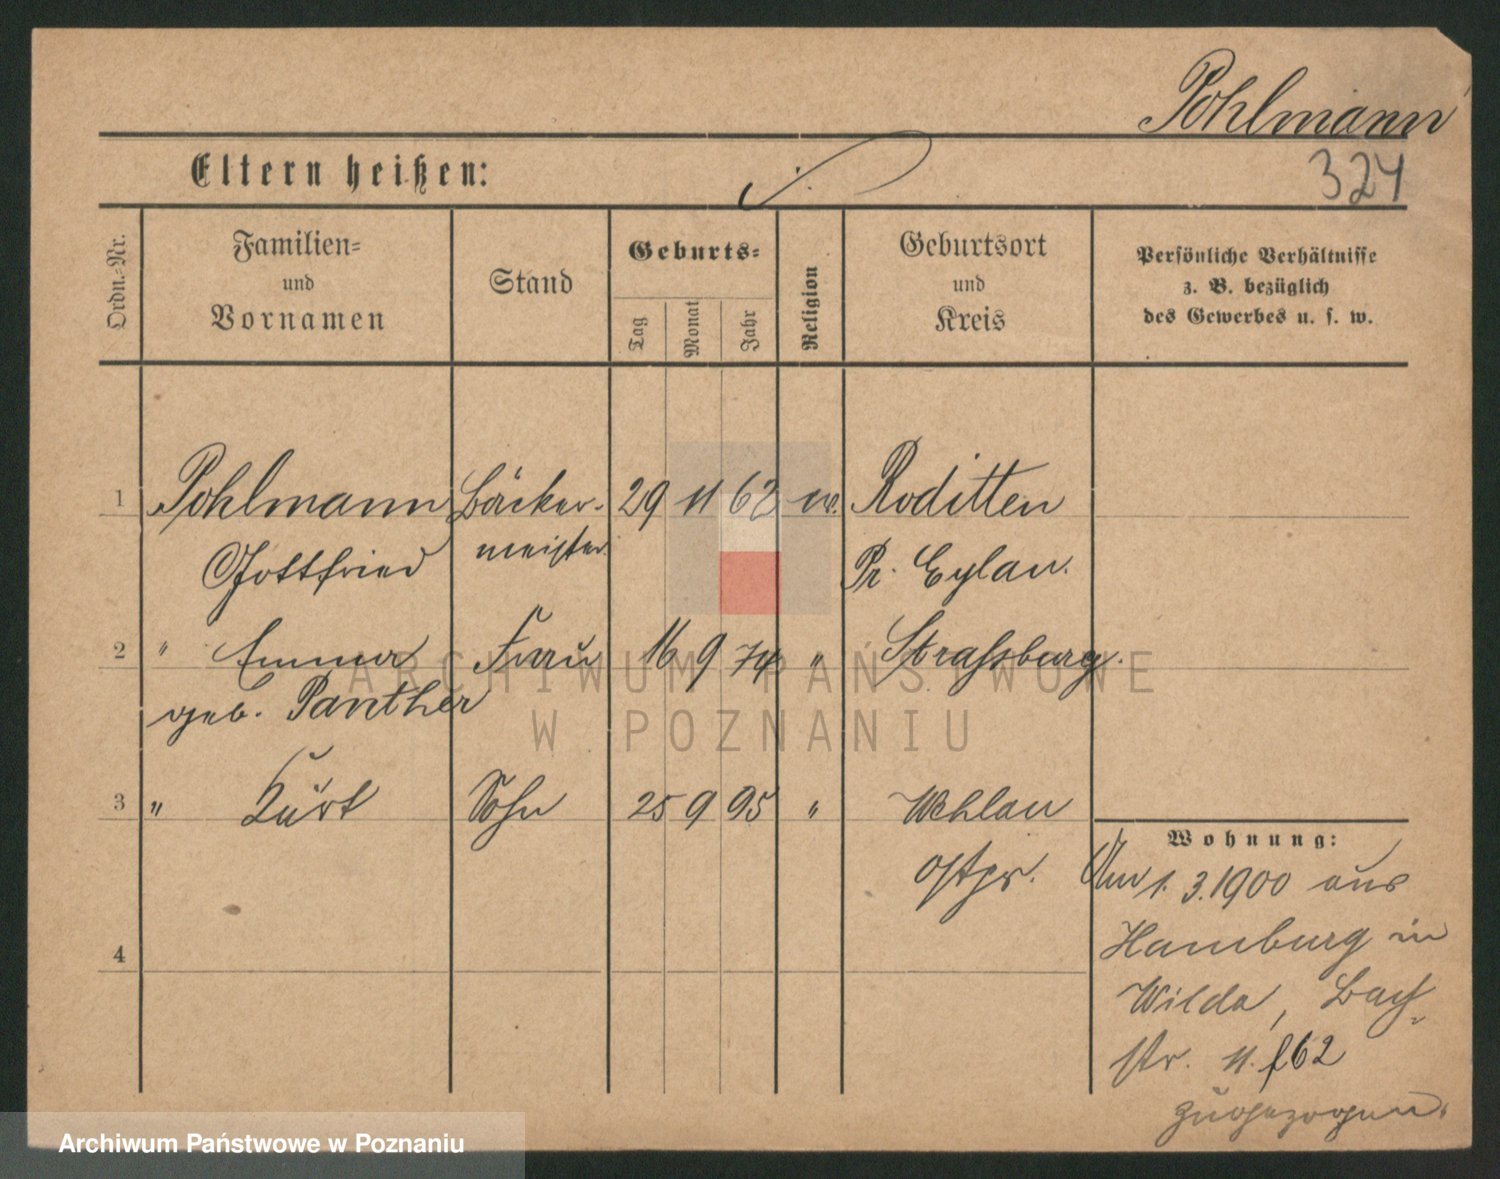 Pohlmann
324
Eltern heißen:
Ordn.-Nr.
Familien- und Vornamen
Stand
Geburts-
Tag
Monat
Jahr
Religion
Geburtsort und Kreis
Persönliche Verhältnisse
z. B. bezüglich
des Gewerbes u. s. w.
1 Pohlmann Bäcker- 29 11 62 ev. Roditten
Gottfried meister Pr. Eylau.
2 " Emma Frau 16 9 74 " Strassburg.
geb. Panther
3 " Kurt Sohn 25 9 95 " Wehlau
Ostpr.
4
Wohnung:
Am 1.3.1900 aus
Hamburg in
Wilda, Bach-
str. 11. f62
zugezogen.
ARCHIWUM PAŃSTWOWE
W POZNANIU
Archiwum Państwowe w Poznaniu